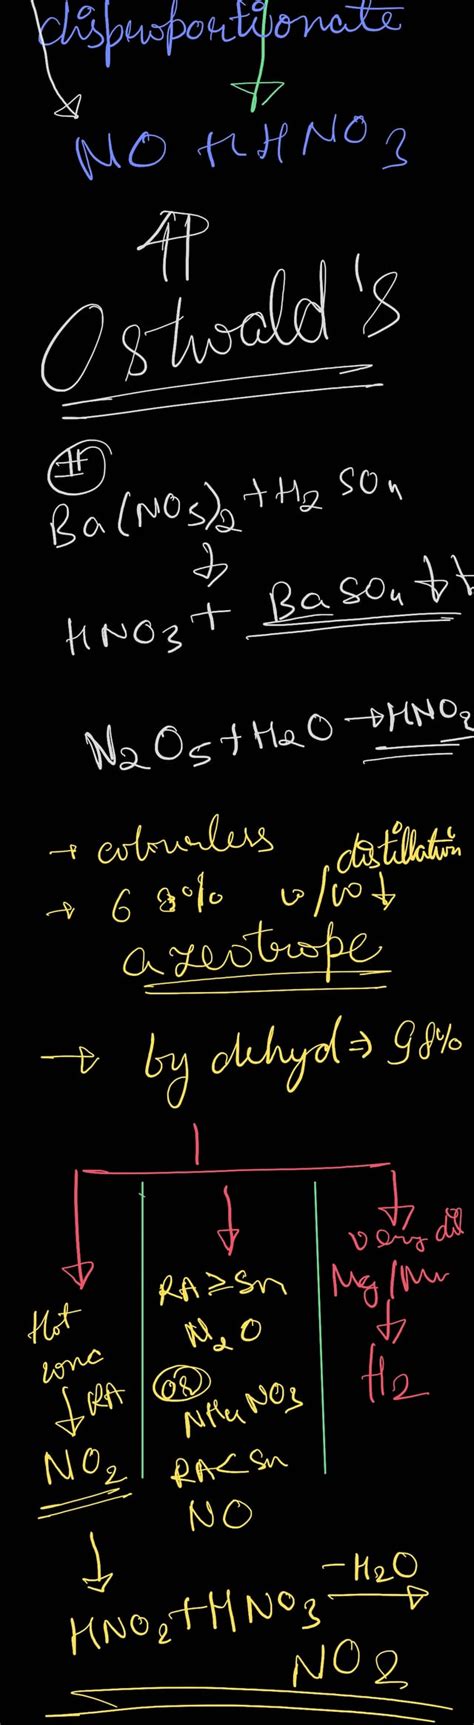 disproportionate
NO + HNO3
Ostwald's
#
Ba(NO3)2 + H2SO4
↓
HNO3 + BaSO4 ↓↓
N2O5 + H2O → HNO3
→ colourless
→ 68% w/w ↓ distillation
azeotrope
→ by dehyd ⇒ 98%
very dil
Mg/Mn
↓
H2
RA ≥ Sn
N2O
OR
NH4NO3
RA < Sn
NO
Hot
conc
↓ RA
NO2
↓
HNO2 + HNO3 -H2O →
NO2